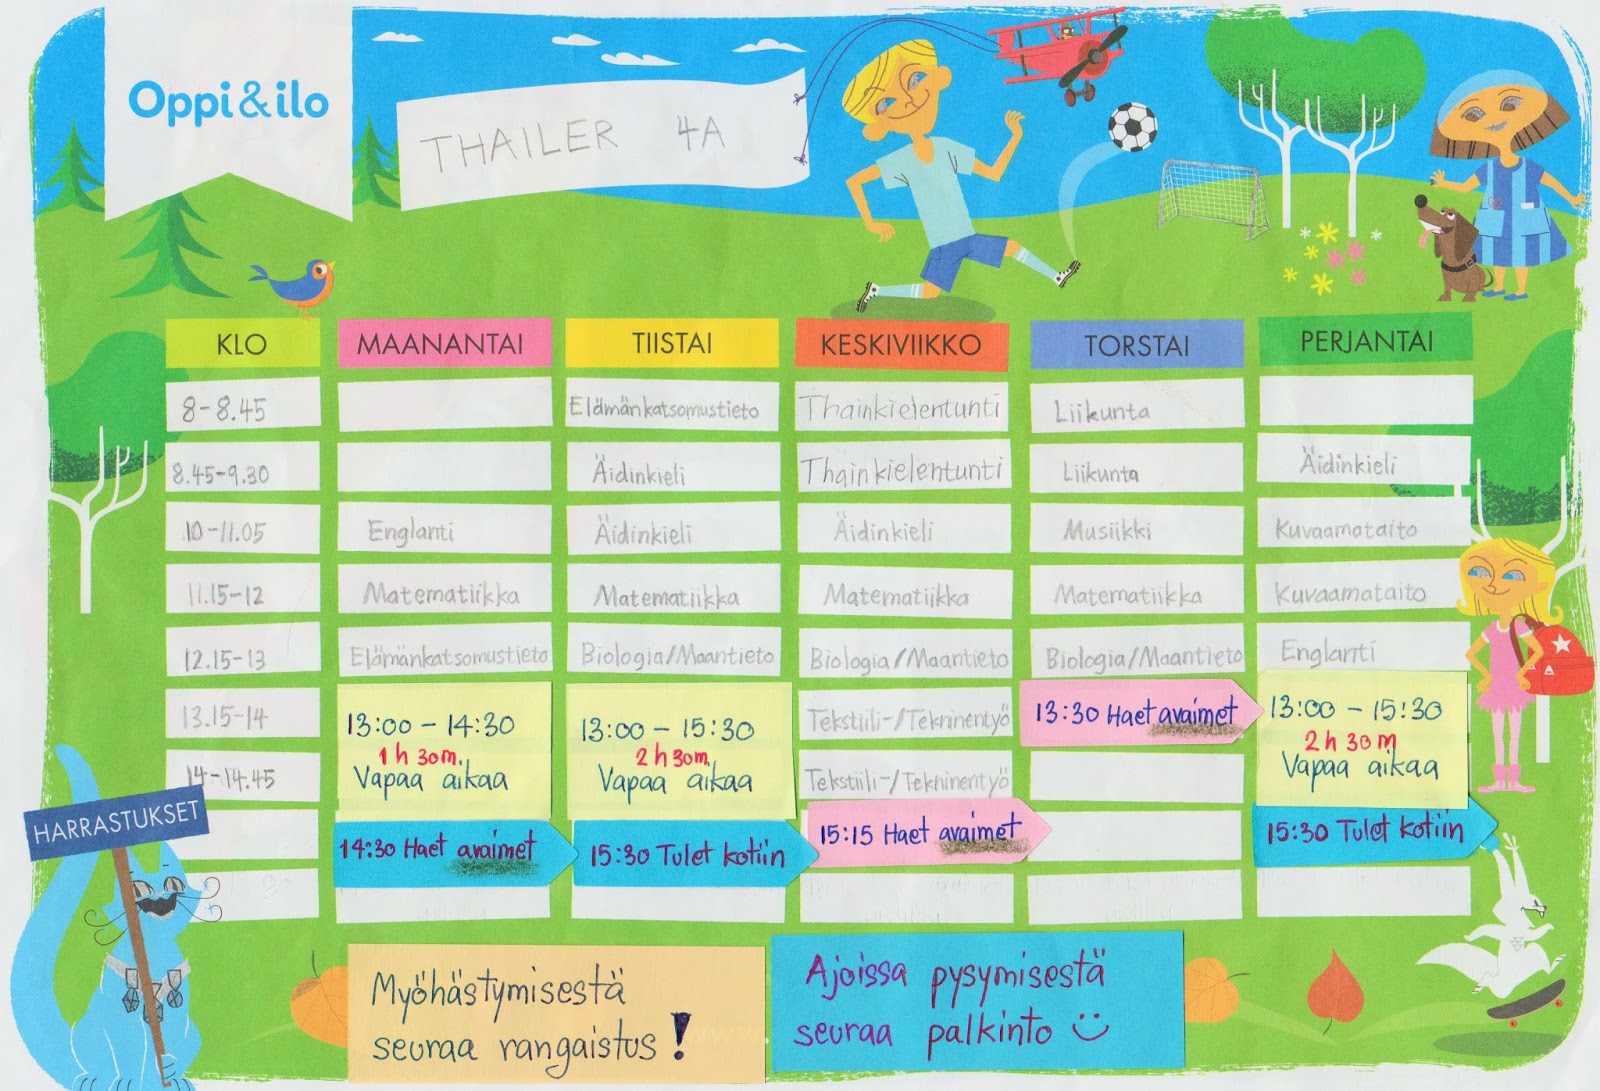 Oppi&ilo
THAILER 4A
KLO MAANANTAI TIISTAI KESKIVIIKKO TORSTAI PERJANTAI
8-8.45 Elämänkatsomustieto Thainkielentunti Liikunta
8.45-9.30 Äidinkieli Thainkielentunti Liikunta Äidinkieli
10-11.05 Englanti Äidinkieli Äidinkieli Musiikki Kuvaamataito
11.15-12 Matematiikka Matematiikka Matematiikka Matematiikka Kuvaamataito
12.15-13 Elämänkatsomustieto Biologia/Maantieto Biologia/Maantieto Biologia/Maantieto Englanti
13.15-14 13:00 - 14:30 13:00 - 15:30 Tekstiili-/Tekninentyö 13:30 Haet avaimet 13:00 - 15:30
1 h 30m. 2 h 30m. 2 h 30m
14-14.45 Vapaa aikaa Vapaa aikaa Tekstiili-/Tekninentyö Vapaa aikaa
HARRASTUKSET
14:30 Haet avaimet 15:30 Tulet kotiin 15:15 Haet avaimet 15:30 Tulet kotiin
Myöhästymisestä
seuraa rangaistus!
Ajoissa pysymisestä
seuraa palkinto